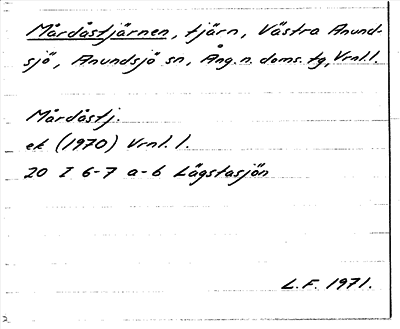 Mårdåstjärnen, tjärn, Västra Anund-
sjö, Anundsjö sn, Ång. n. doms. tg, Vrnl. l.
Mårdåstj.
ek (1970) Vrnl. l.
20 I 6-7 a-b Lägstasjön
L.F. 1971.